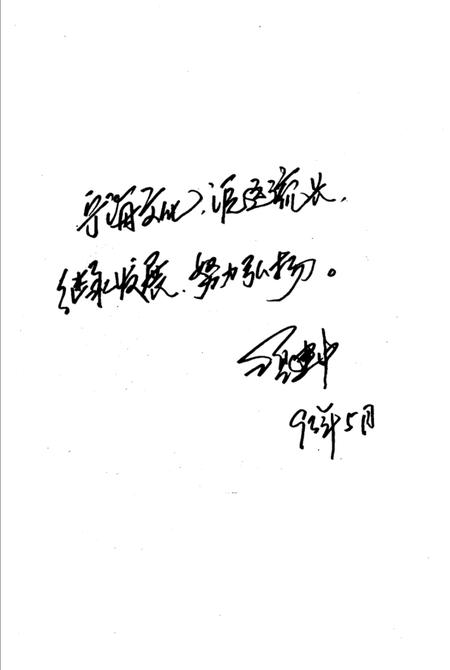 宁海文化，源远流长，
继承发展，努力弘扬。
建中
93年5月